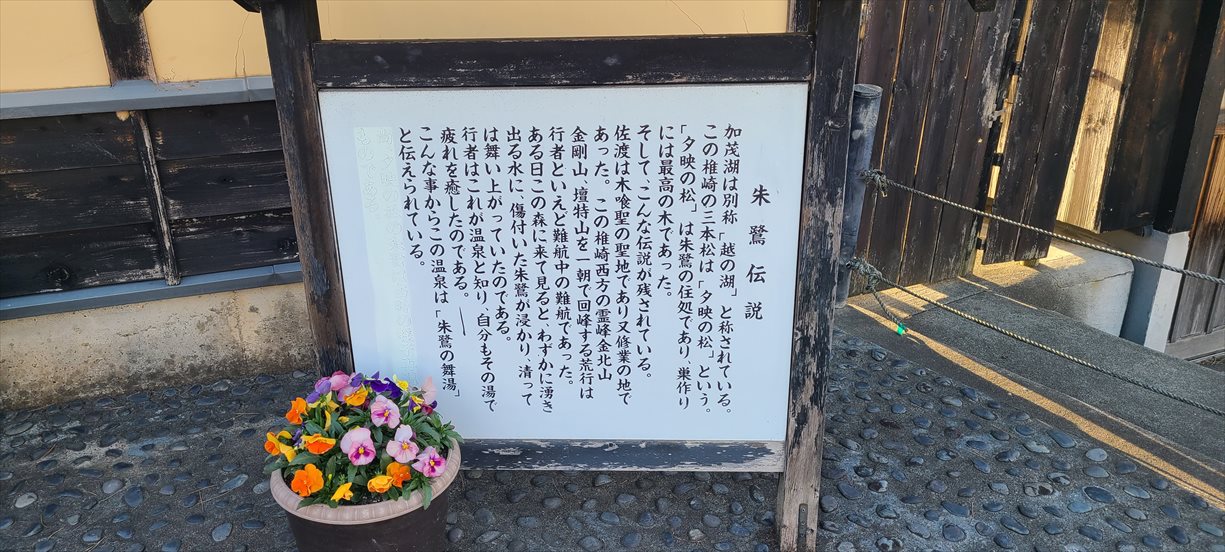 朱鷺伝説
加茂湖は別称「越の湖」と称されている。
この椎崎の三本松は「夕映の松」という。
「夕映の松」は朱鷺の住処であり、巣作り
には最高の木であった。
そして、こんな伝説が残されている。
佐渡は木喰聖の聖地であり又修業の地で
あった。この椎崎西方の霊峰金北山
金剛山 壇特山を一朝で回峰する荒行は
行者といえど難航中の難航であった。
ある日この森に来て見ると、わずかに湧き
出る水に、傷付いた朱鷺が浸かり、清って
は舞い上がっていたのである。
行者はこれが温泉と知り、自分もその湯で
疲れを癒したのである。――
こんな事からこの温泉は「朱鷺の舞湯」
と伝えられている。